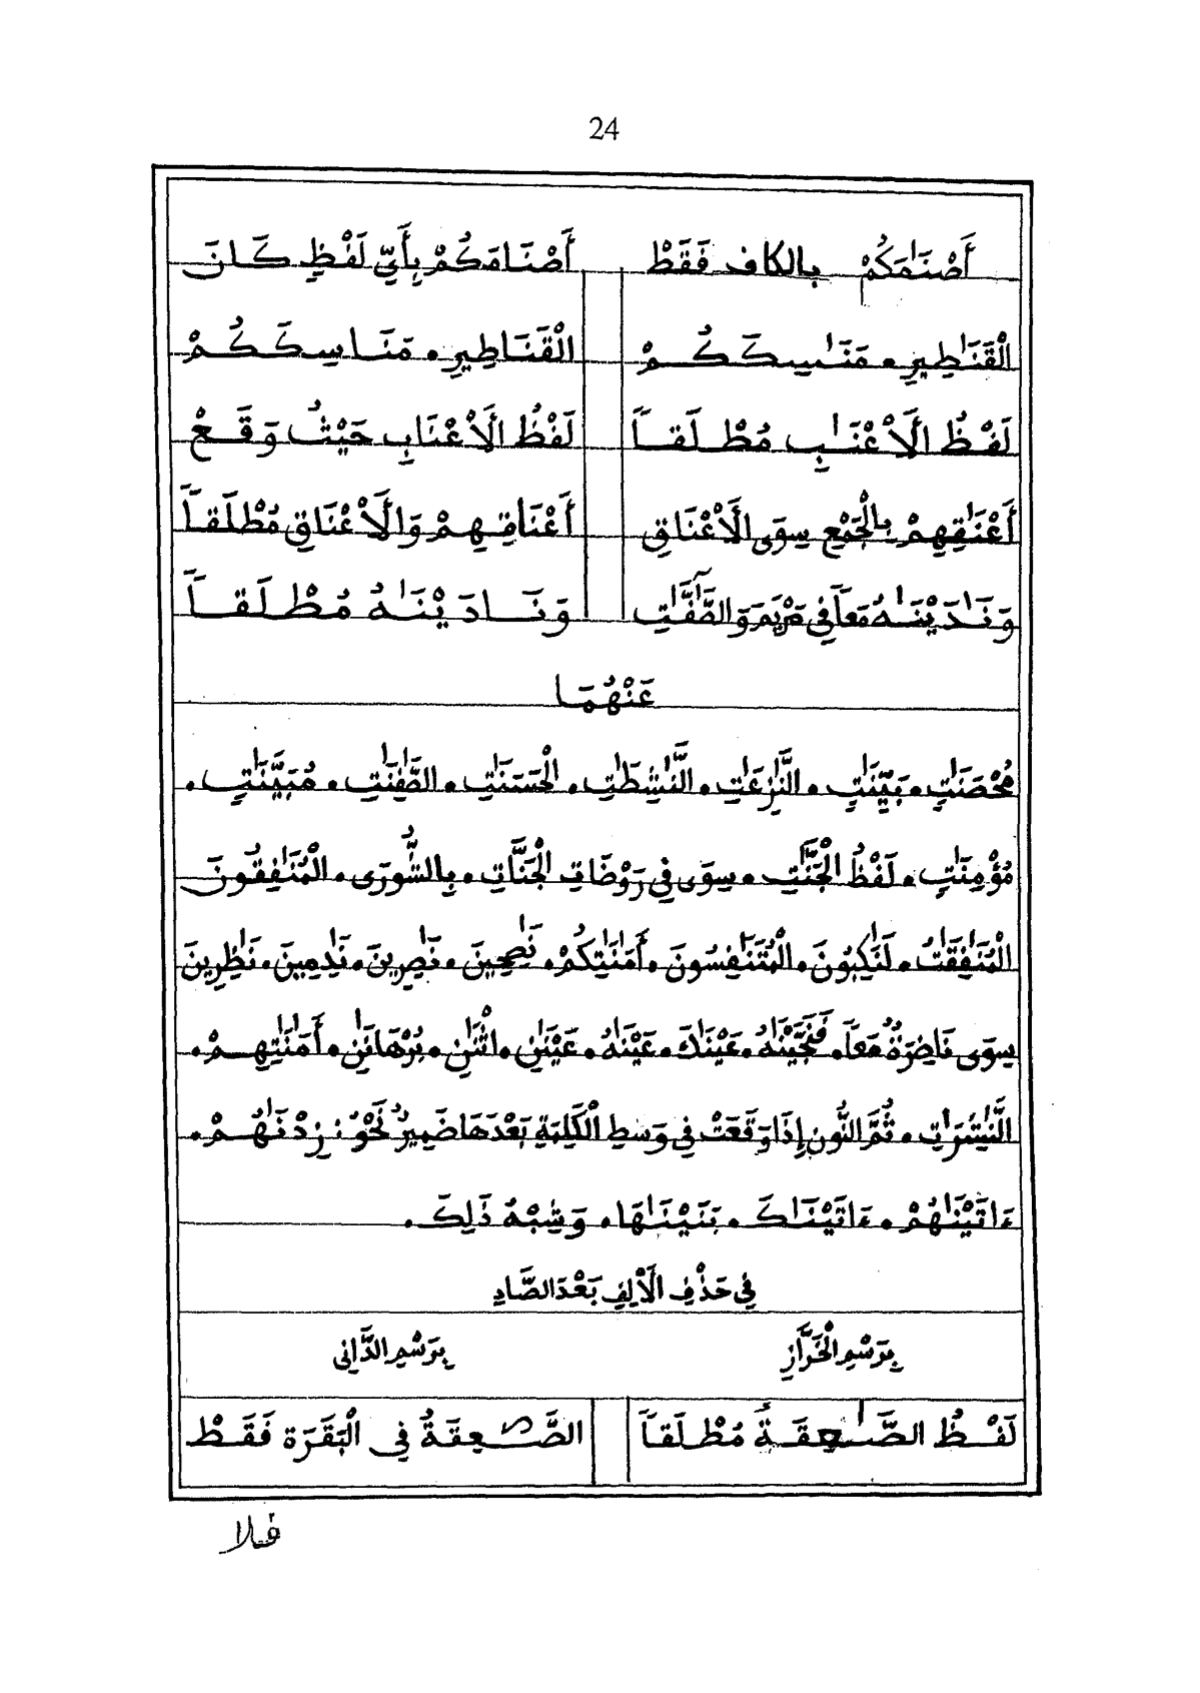 24
أَصْنَٰمَكُمْ بِالْكَافِ فَقَطْ أَصْنَامَكُمْ بِأَيِّ لَفْظٍ كَانَ
الْقَنَٰطِيرِ • مَنَٰسِكَكُمْ الْقَنَاطِيرِ • مَنَاسِكَكُمْ
لَفْظُ الَاعْنَٰبِ مُطْلَقاً لَفْظُ الَاعْنَابِ حَيْثُ وَقَعْ
أَعْنَٰقِهِمْ بِالْجَمْعِ سِوَى الَاعْنَاقِ أَعْنَاقِهِمْ وَالَاعْنَاقِ مُطْلَقاً
وَنَٰدَيْنَٰهُ مَعاً فِي مَرْيَمَ وَالصَّٰٓفَّٰتِ وَنَادَيْنَٰهُ مُطْلَقاً
عَنْهُمَا
مُحْصَنَٰتٍ • بَيِّنَٰتٍ • النَّٰزِعَٰتِ • النَّٰشِطَٰتِ • الْحَسَنَٰتِ • الصَّٰفِنَٰتِ • مُبَيَّنَٰتٍ •
مُؤْمِنَٰتٍ • لَفْظُ الْجَنَّٰتِ • سِوَى فِي رَوْضَاتِ الْجَنَّاتِ • بِالشُّورَى • الْمُنَٰفِقُونَ
الْمُنَٰفِقَٰتُ • لَنَٰكِبُونَ • الْمُتَنَٰفِسُونَ • أَمَٰنَٰتِكُمْ • نَٰصِحِينَ • نَٰصِرِينَ • نَٰدِمِينَ • نَٰظِرِينَ
سِوَى نَاضِرَةٌ مَعاً • فَنَجَّيْنَٰهُ • عَيْنَٰكَ • عَيْنَٰهُ • عَيْنَٰنِ • اثْنَٰنِ • بُرْهَٰنَٰنِ • أَمَٰنَٰتِهِمْ •
النَّٰشِرَٰتِ • ثُمَّ النُّونِ إِذَا وَقَعَتْ فِي وَسَطِ الْكَلِمَةِ بَعْدَهَا ضَمِيرٌ نَحْوُ: زِدْنَٰهُمْ •
ءَاتَيْنَٰهُمْ • ءَاتَيْنَٰكَ • بَنَيْنَٰهَا • وَشِبْهُ ذَلِكَ •
فِي حَذْفِ الَالِفِ بَعْدَ الصَّادِ
بِرَسْمِ الْخَرَّازِ بِرَسْمِ الدَّانِي
لَفْظُ الصَّٰعِقَةُ مُطْلَقاً الصَّٰعِقَةُ فِي الْبَقَرَةِ فَقَطْ
فلا